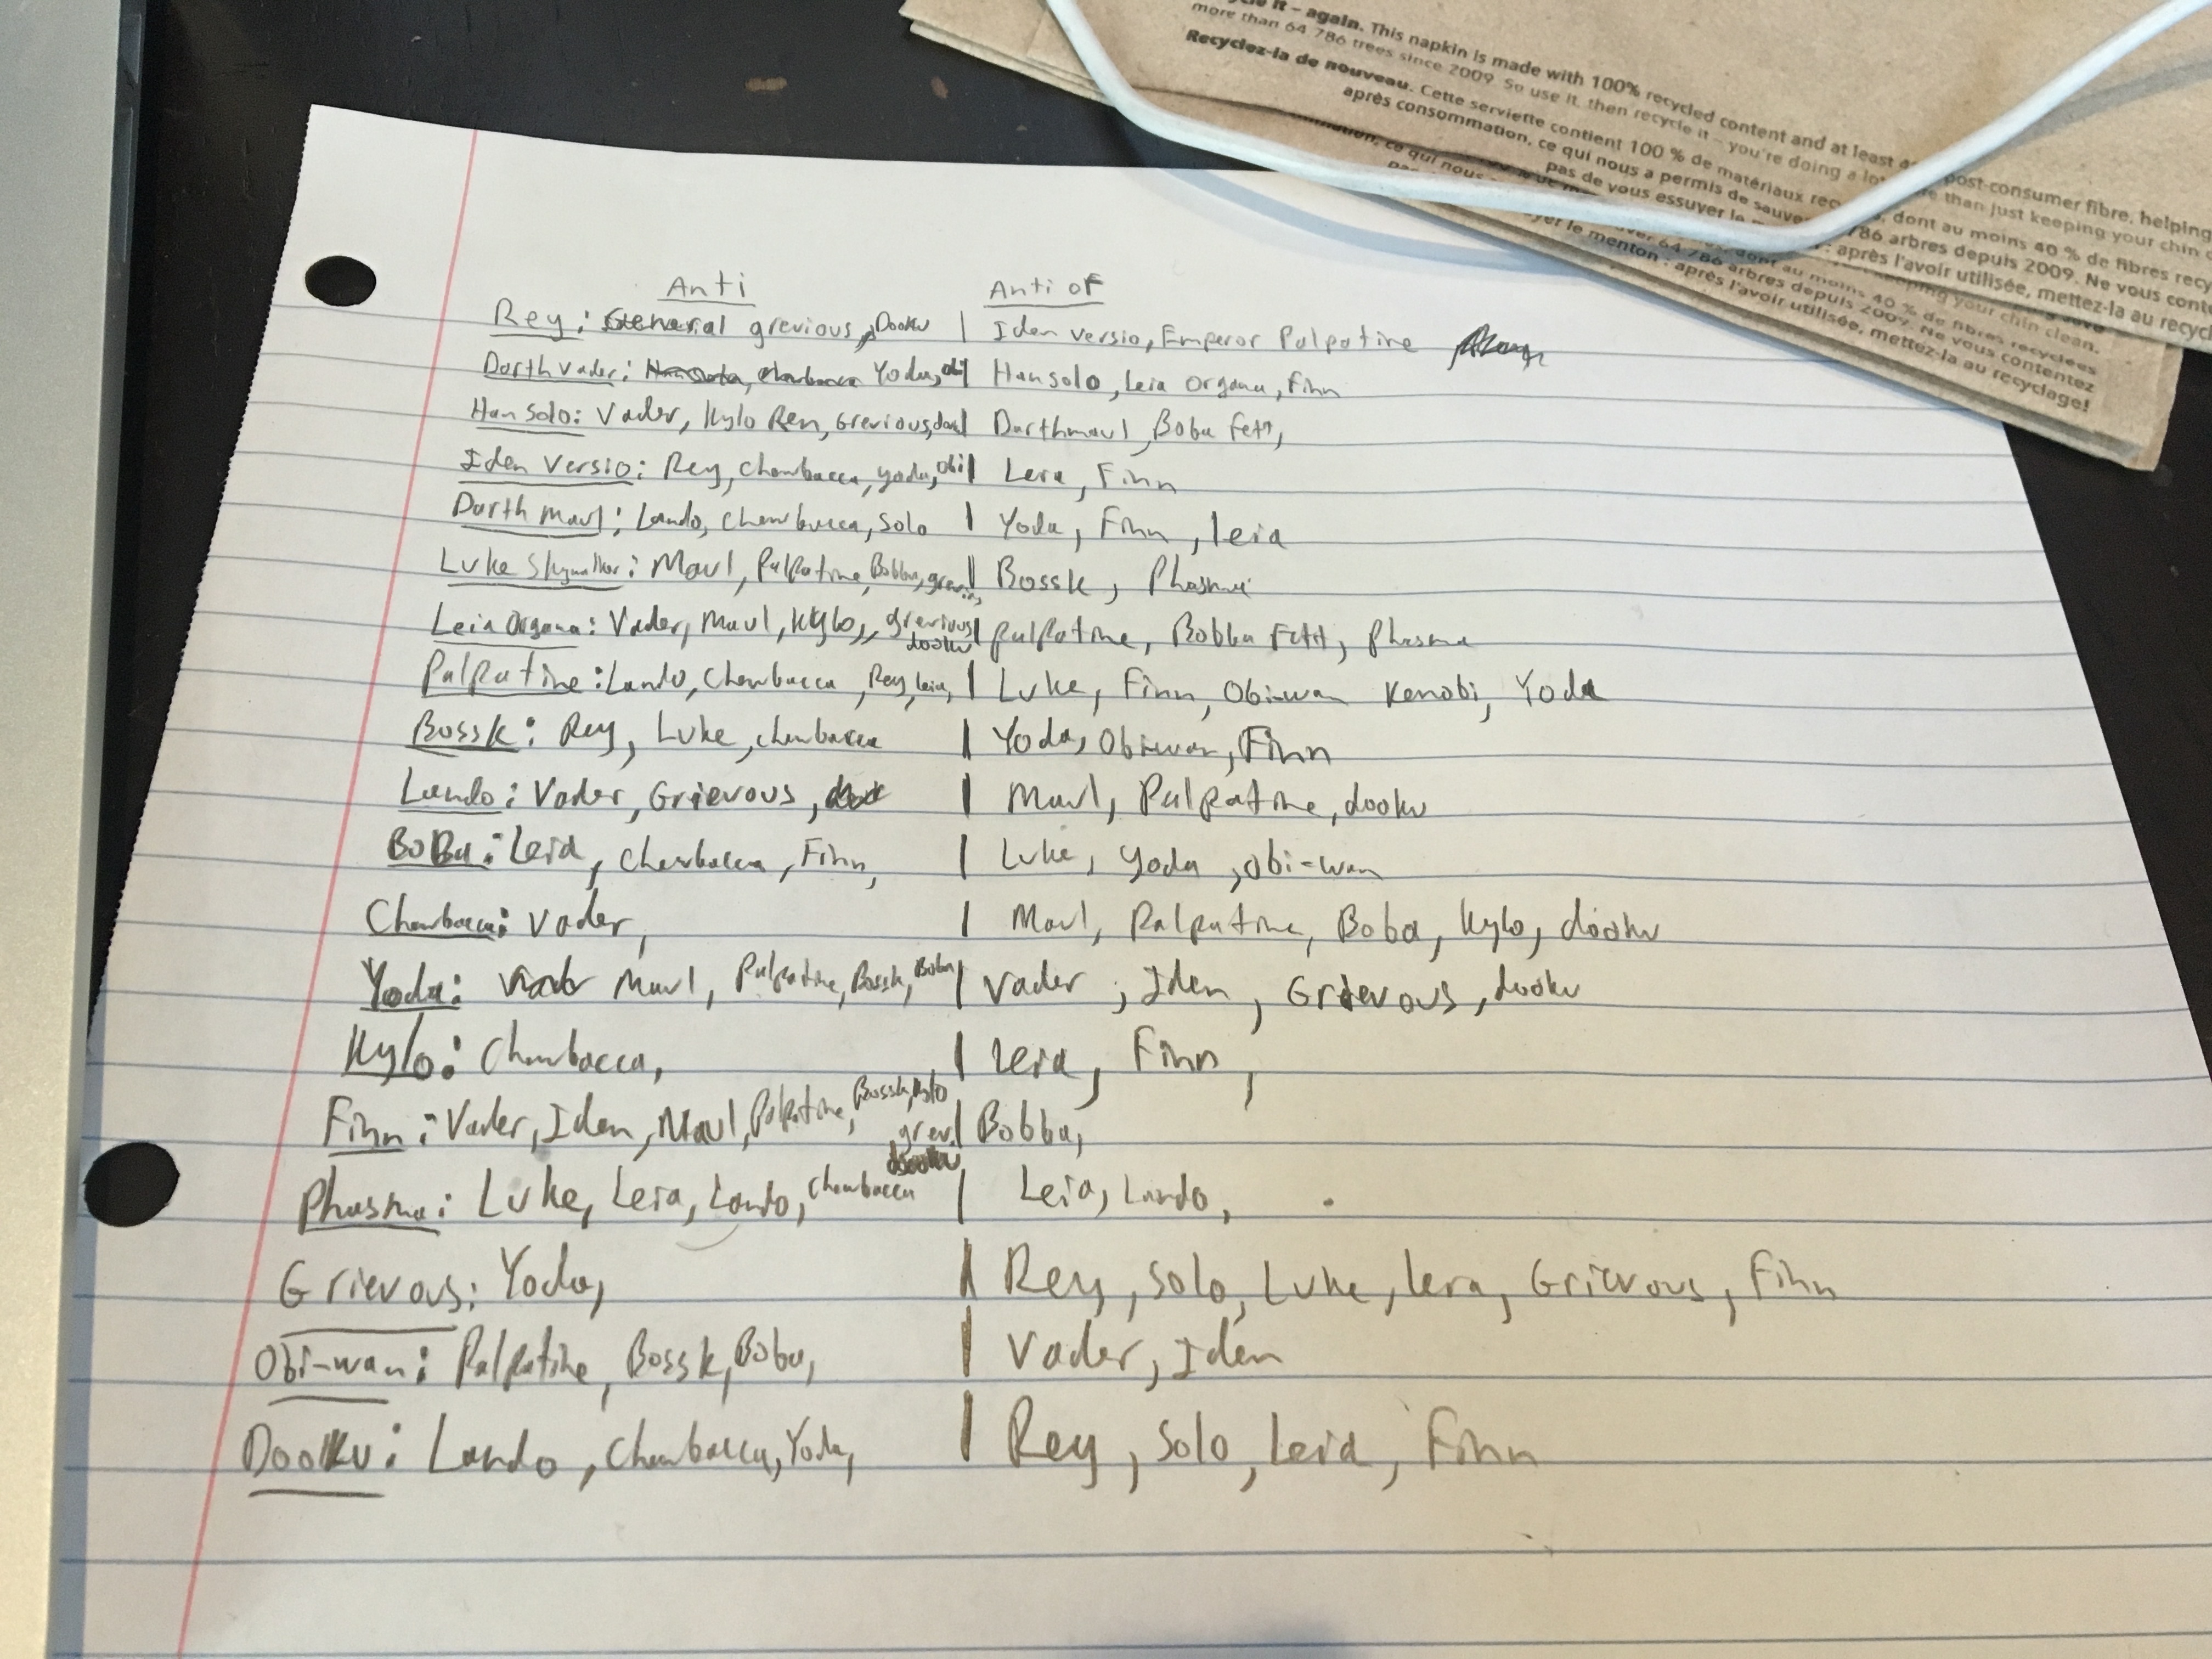 cle it – again. This napkin is made with 100% recycled content and at least 40 post-consumer fibre, helping
more than 64 786 trees since 2009. So use it, then recycle it – you're doing a lot than just keeping your chin
Recyclez-la de nouveau. Cette serviette contient 100 % de matériaux dont au moins 40 % de fibres
après consommation, ce qui nous a permis de 786 arbres depuis 2009. Ne vous
pas de vous essuyer le : après l'avoir utilisée, mettez-la au
ce qui nous
keeping your chin clean.
au moins 40 % de fibres recyclées
64 786 arbres depuis 2009. Ne vous contentez
le menton : après l'avoir utilisée, mettez-la au recyclage!
Anti Anti of
Rey: General grevious, Dooku | Iden Versio, Emperor Palpatine
Darth vader: Yoda, obi | Han solo, Leia Organa, Finn
Han Solo: Vader, Kylo Ren, Grevious, | Darthmaul, Boba fett,
Iden Versio: Rey, Chewbacca, Yoda, obi | Leia, Finn
Darth Maul: Lando, Chewbacca, Solo | Yoda, Finn, leia
Luke Skywalker: Maul, Palpatine, Bobba, | Bossk, Phasma
Leia Organa: Vader, Maul, Kylo, grevious | palpatine, Bobba Fett, phasma
dooku
Palpatine: Lando, Chewbacca, Rey, leia, | Luke, Finn, Obi-wan Kenobi, Yoda
Bossk: Rey, Luke, chewbacca | Yoda, Obi-wan, Finn
Lando: Vader, Grievous, | Maul, Palpatine, dooku
BoBa: Leia, Chewbacca, Finn, | Luke, Yoda, obi-wan
Chewbacca: Vader, | Maul, Palpatine, Boba, Kylo, dooku
Yoda: Maul, Palpatine, Bossk, Boba | Vader, Iden, Grievous, dooku
Kylo: Chewbacca, | Leia, Finn,
Finn: Vader, Iden, Maul, Palpatine, Bossk, Kylo
, grev. | Bobba,
dooku
Phasma: Luke, Leia, Lando, Chewbacca | Leia, Lando,
Grievous: Yoda, | Rey, Solo, Luke, leia, Grievous, Finn
Obi-wan: Palpatine, Bossk, Boba, | Vader, Iden
Dooku: Lando, Chewbacca, Yoda, | Rey, Solo, Leia, Finn